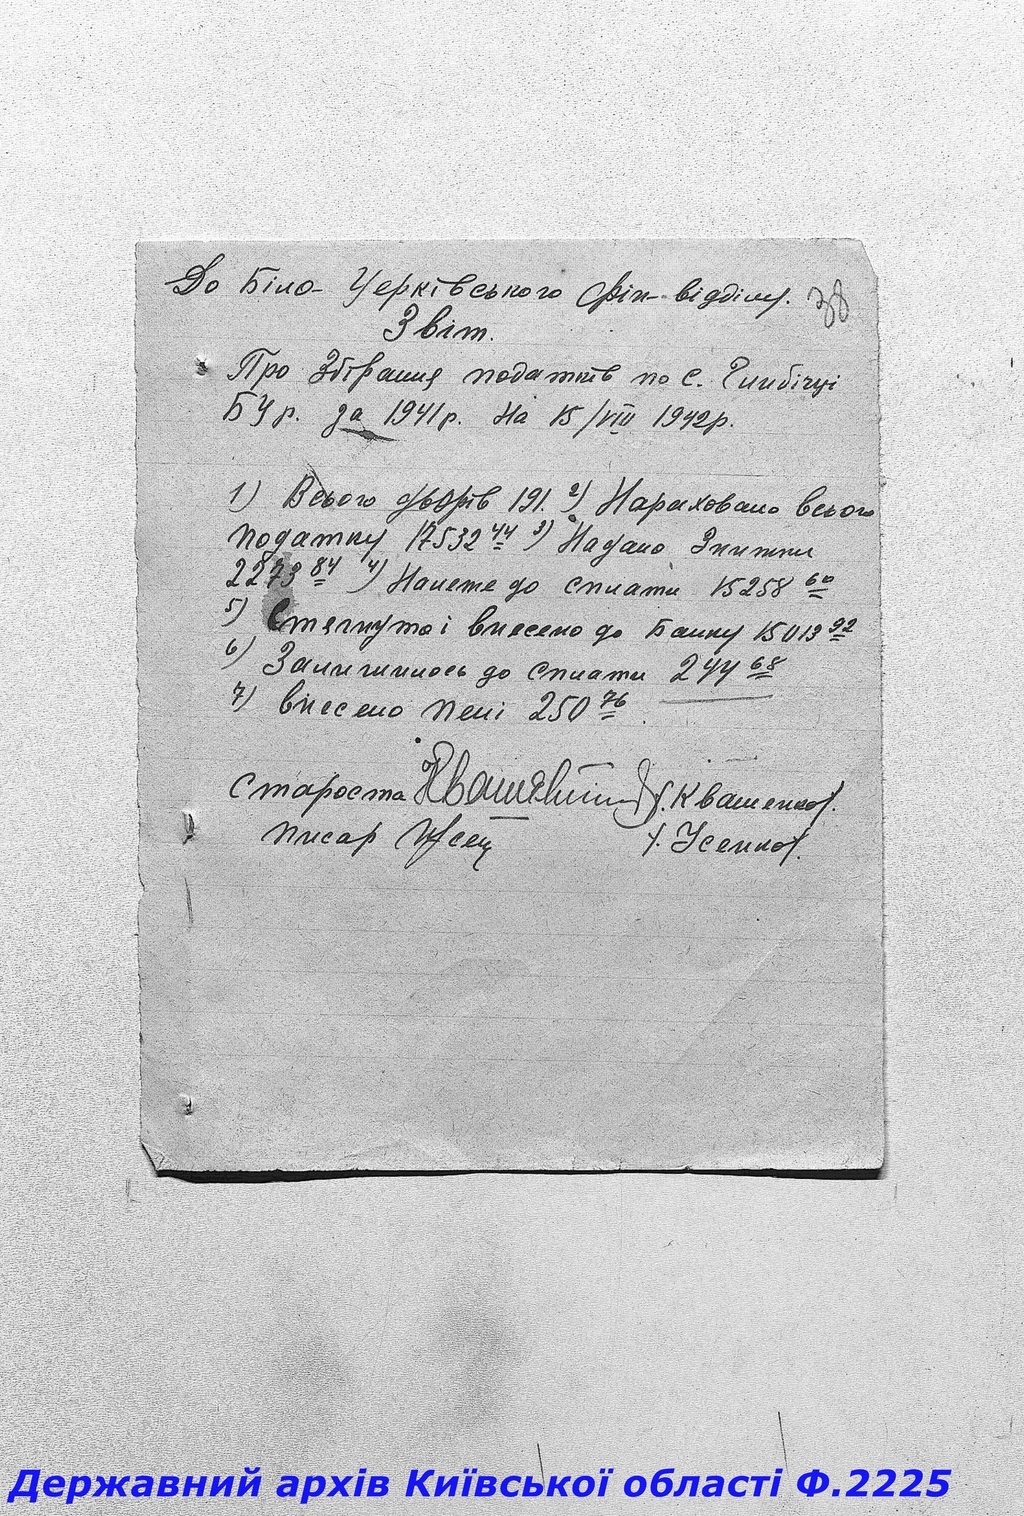 До Біло-Церківського Фін-відділу. 38
Звіт.
Про Збірання податків по с. Глибічці
БЦр. за 1941р. На 15/VIII 1942р.
1) Всього дворів 191. 2) Нараховано всього
податку 17532 44 3) Надано Знижки
2273 84 4) Належе до сплати 15258 60
5) Стягнуто і внесено до Банку 15013 92
6) Залишилось до сплати 244 68
7) внесено пені 250 76
Староста /. Квашенко/.
писар Усен /. Усенко/.
Державний архів Київської області Ф.2225